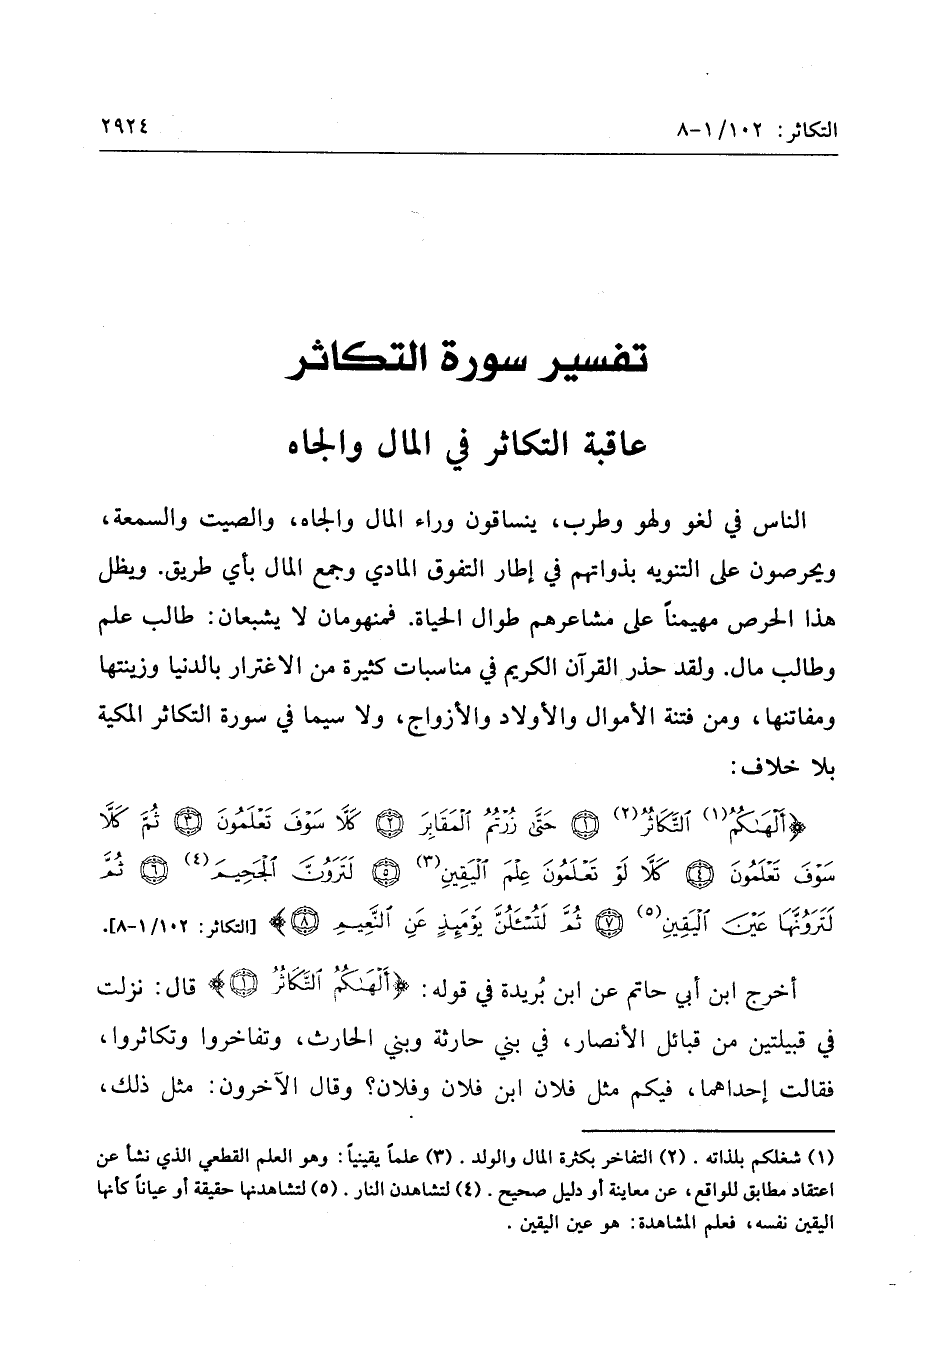 التكاثر: ١٠٢/ ١-٨ ٢٩٢٤
تفسير سورة التكاثر
عاقبة التكاثر في المال والجاه
الناس في لغو ولهو وطرب، ينساقون وراء المال والجاه، والصيت والسمعة،
ويحرصون على التنويه بذواتهم في إطار التفوق المادي وجمع المال بأي طريق. ويظل
هذا الحرص مهيمناً على مشاعرهم طوال الحياة. فمنهومان لا يشبعان: طالب علم
وطالب مال. ولقد حذر القرآن الكريم في مناسبات كثيرة من الاغترار بالدنيا وزينتها
ومفاتنها، ومن فتنة الأموال والأولاد والأزواج، ولا سيما في سورة التكاثر المكية
بلا خلاف:
﴿أَلْهَىٰكُمُ(١) ٱلتَّكَاثُرُ(٢) ١ حَتَّىٰ زُرْتُمُ ٱلْمَقَابِرَ ٢ كَلَّا سَوْفَ تَعْلَمُونَ ٣ ثُمَّ كَلَّا
سَوْفَ تَعْلَمُونَ ٤ كَلَّا لَوْ تَعْلَمُونَ عِلْمَ ٱلْيَقِينِ(٣) ٥ لَتَرَوُنَّ ٱلْجَحِيمَ(٤) ٦ ثُمَّ
لَتَرَوُنَّهَا عَيْنَ ٱلْيَقِينِ(٥) ٧ ثُمَّ لَتُسْـَٔلُنَّ يَوْمَئِذٍ عَنِ ٱلنَّعِيمِ ٨﴾ [التكاثر: ١٠٢/ ١-٨].
أخرج ابن أبي حاتم عن ابن بُريدة في قوله: ﴿أَلْهَىٰكُمُ ٱلتَّكَاثُرُ ١﴾ قال: نزلت
في قبيلتين من قبائل الأنصار، في بني حارثة وبني الحارث، وتفاخروا وتكاثروا،
فقالت إحداهما، فيكم مثل فلان ابن فلان وفلان؟ وقال الآخرون: مثل ذلك،
(١) شغلكم بلذاته . (٢) التفاخر بكثرة المال والولد . (٣) علماً يقينياً: وهو العلم القطعي الذي نشأ عن
اعتقاد مطابق للواقع، عن معاينة أو دليل صحيح . (٤) لتشاهدن النار . (٥) لتشاهدنها حقيقة أو عياناً كأنها
اليقين نفسه، فعلم المشاهدة: هو عين اليقين .